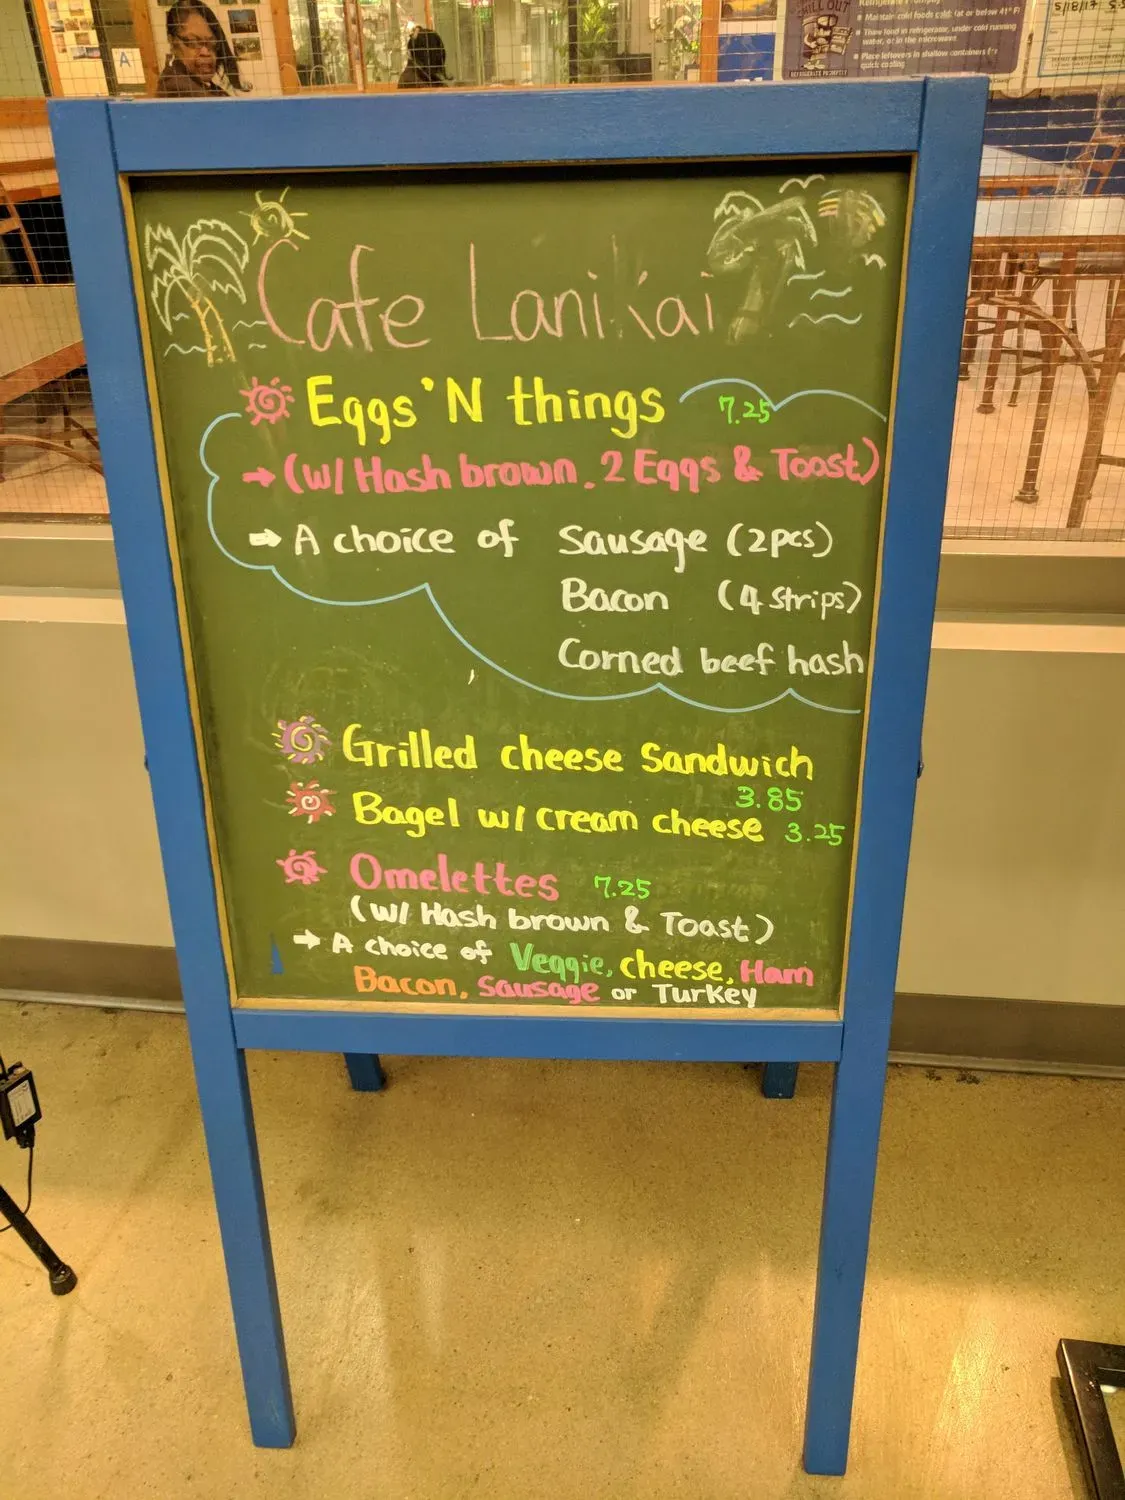 CHILL OUT
REFRIGERATE PROMPTLY
Refrigerate Promptly
■ Maintain cold foods cold: (at or below 41° F)
■ Thaw food in refrigerator, under cold running
water, or in the microwave
■ Place leftovers in shallow containers for
quick cooling
5/18/17
A
Cafe Lanikai
Eggs 'N things 7.25
→ (w/ Hash brown, 2 Eggs & Toast)
→ A choice of Sausage (2pcs)
Bacon (4 strips)
Corned beef hash
Grilled cheese Sandwich
3.85
Bagel w/ cream cheese 3.25
Omelettes 7.25
(w/ Hash brown & Toast)
→ A choice of Veggie, cheese, Ham
Bacon, Sausage or Turkey